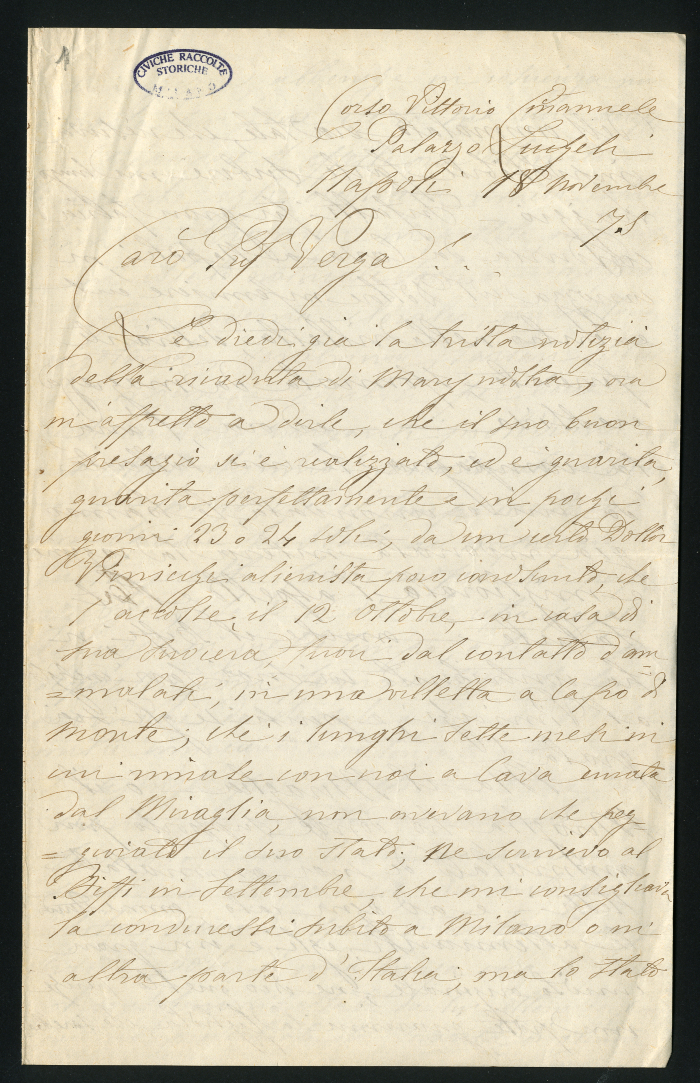 1
CIVICHE RACCOLTE
STORICHE
MILANO
Corso Vittorio Emanuele
Palazzo
Napoli 18 Novembre
75
Caro Prof Verga!
Le diedi già la trista notizia
della ricaduta di Mary nostra, ora
m'affretto a dirle, che il suo buon
presagio si è realizzato, ed è guarita,
guarita perfettamente e in pochi
giorni 23 o 24 soli, da un certo Dottor
alienista poco conosciuto, che
l'accolse il 12 Ottobre, in casa di
sua suocera, fuori dal contatto d'am-
=malati, in una villetta a Capo di
Monte; che i lunghi sette mesi in
cui rimase con noi a Cava curata
dal Miraglia, non avevano che peg-
=giorato il suo stato; ne scrivevo al
Biffi in Settembre, che mi consigliava
la conducessi subito a Milano o in
altra parte d'Italia, ma lo stato